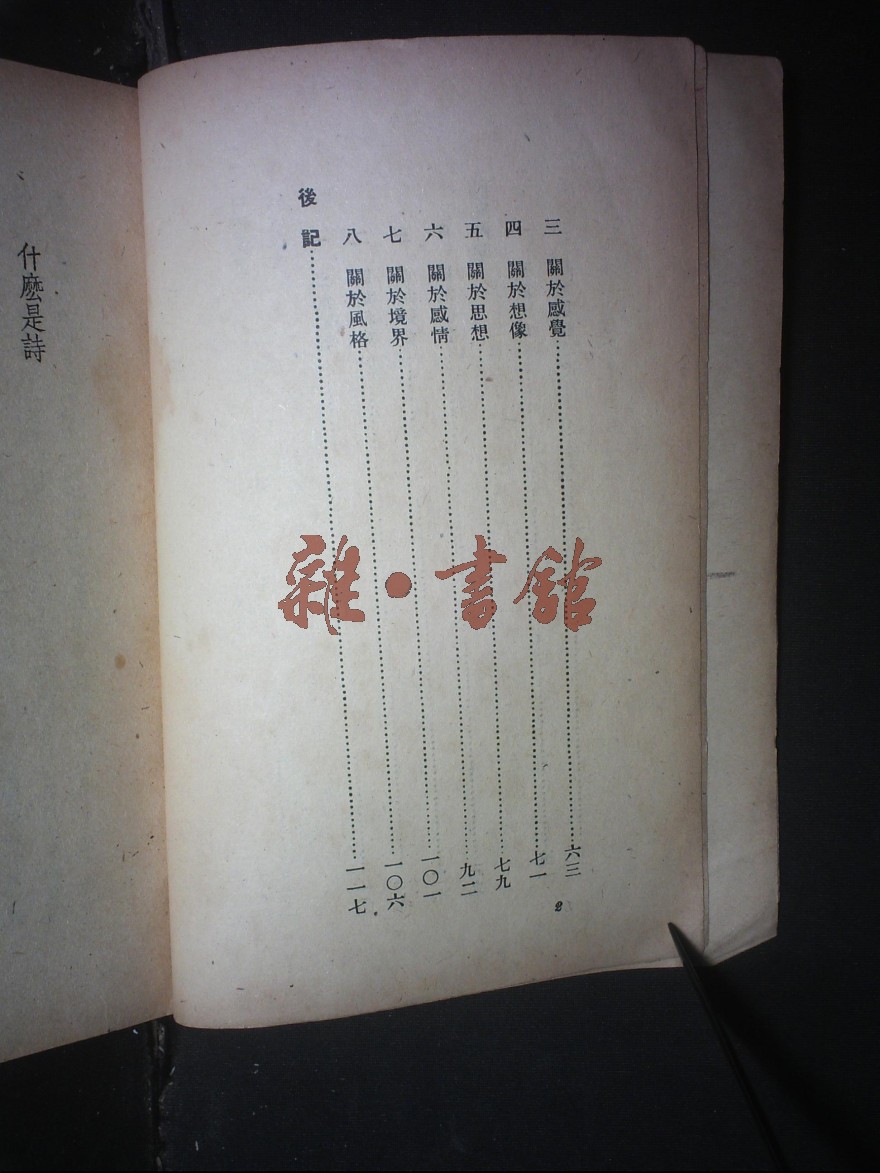 三 關於感覺……六三
四 關於想像……七一
五 關於思想……七九
六 關於感情……九二
七 關於境界……一〇一
八 關於風格……一〇六
後記……一一七
2
什麽是詩
雜·書館